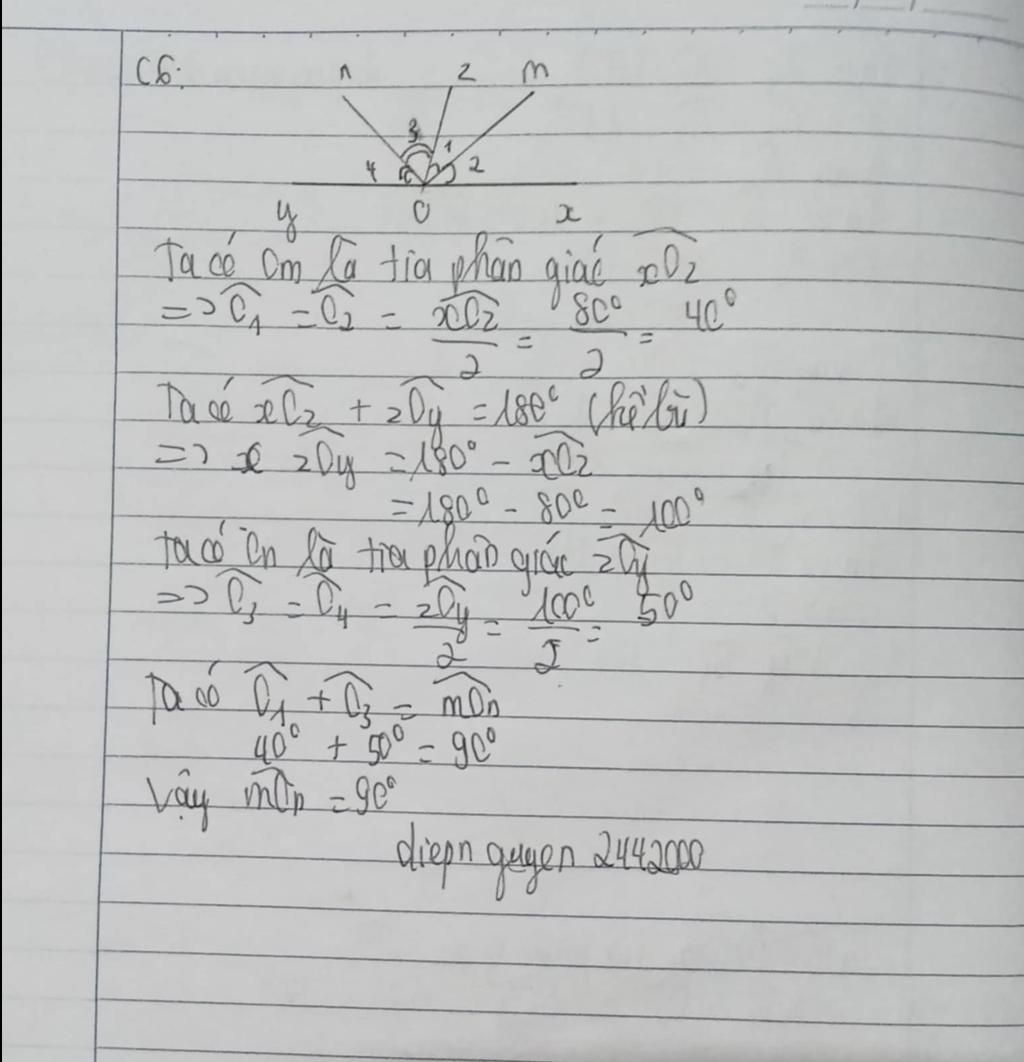 C6:
n z m
3 1
4 2
y O x
Ta có Om là tia phân giác xOz
=> O1 = O2 = xOz/2 = 80°/2 = 40°
Ta có xOz + zOy = 180° (kề bù)
=> zOy = 180° - xOz
= 180° - 80° = 100°
Ta có On là tia phân giác zOy
=> O3 = O4 = zOy/2 = 100°/2 = 50°
Ta có O1 + O3 = mOn
40° + 50° = 90°
Vậy mOn = 90°
diepn guyen 2442000